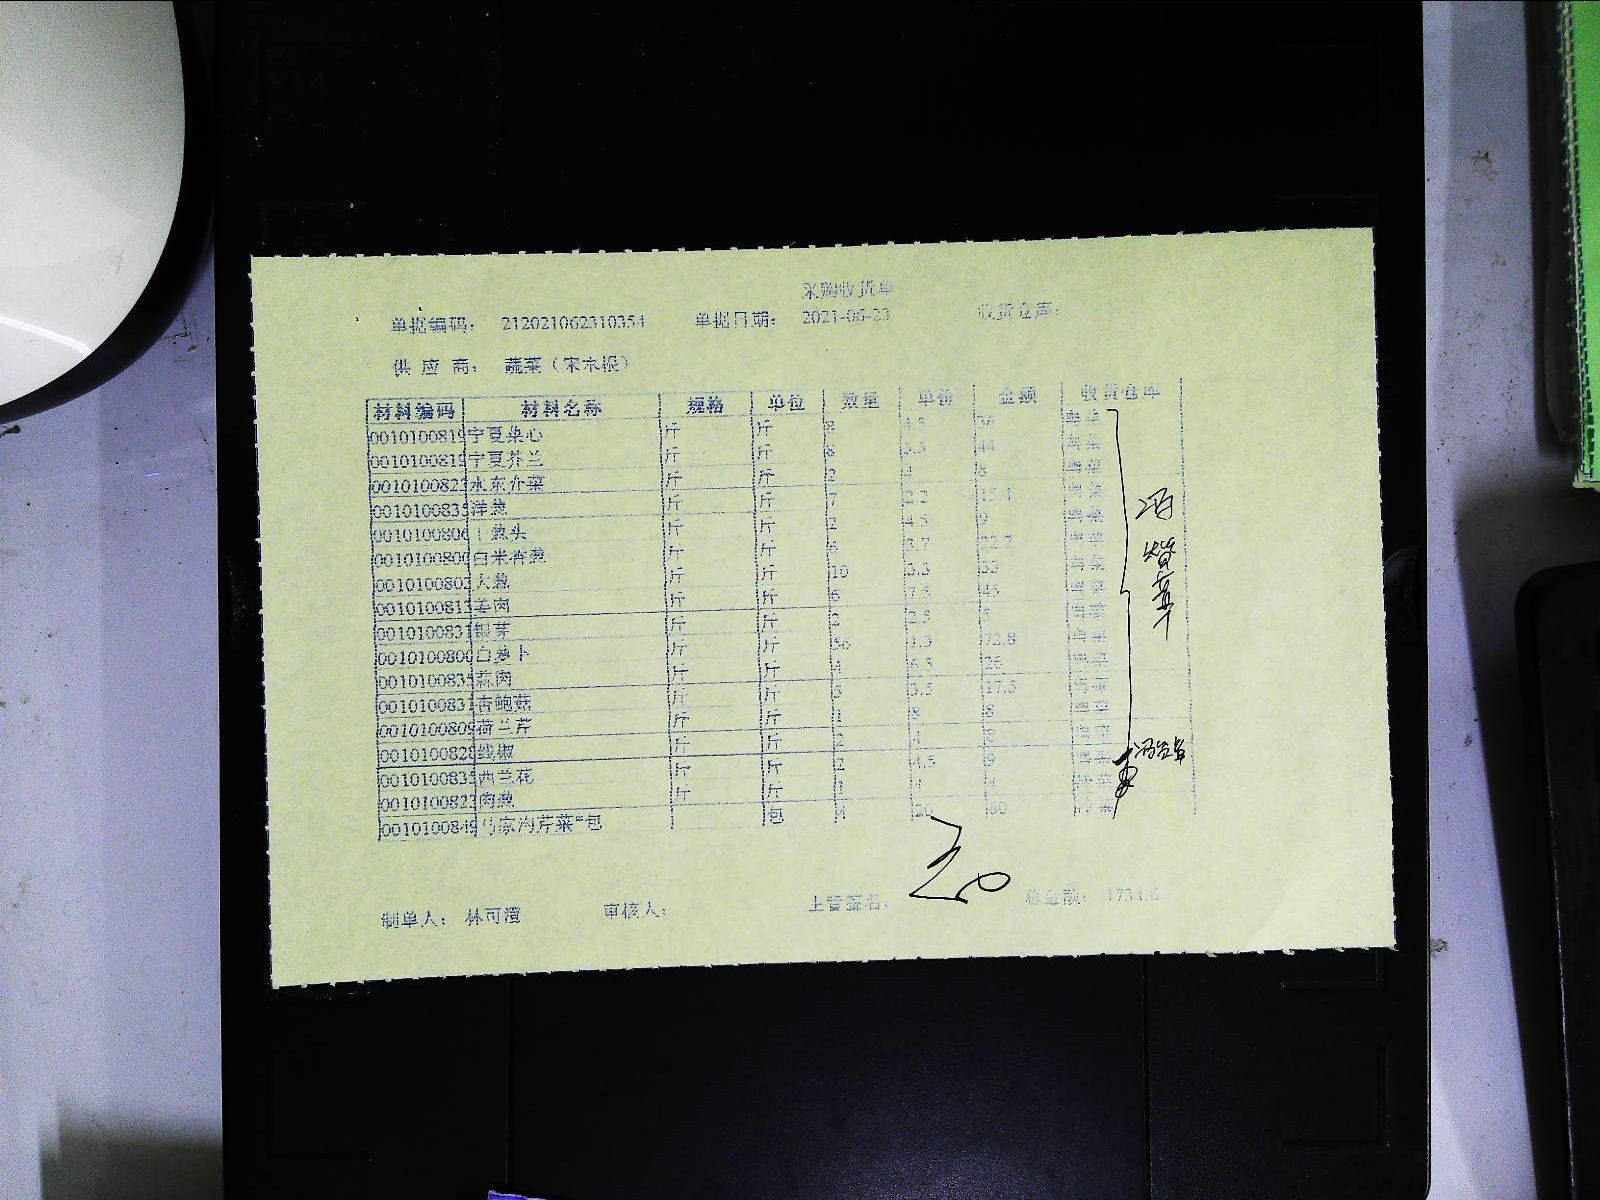 采购收货单
单据编码： 212021062310354 单据日期： 2021-06-23 收货仓库：
供 应 商： 蔬菜（宋木根）
材料编码 材料名称 规格 单位 数量 单价 金额 收货仓库
0010100819 宁夏菜心 斤 斤 8 4.5 36 粤菜
0010100819 宁夏芥兰 斤 斤 8 5.5 44 粤菜
0010100823 水东介菜 斤 斤 2 4 8 粤菜
0010100835 洋葱 斤 斤 7 2.2 15.4 粤菜
0010100806 干葱头 斤 斤 2 4.5 9 粤菜
0010100800 白米香葱 斤 斤 6 3.7 22.2 粤菜
0010100803 大葱 斤 斤 10 3.3 33 粤菜
0010100813 姜肉 斤 斤 6 7.5 45 粤菜
0010100831 银芽 斤 斤 2 2.5 5 粤菜
0010100800 白萝卜 斤 斤 56 1.3 72.8 粤菜
0010100835 蒜肉 斤 斤 4 6.5 26 粤菜
0010100831 杏鲍菇 斤 斤 5 3.5 17.5 粤菜
0010100809 荷兰芹 斤 斤 1 8 8
0010100828 线椒 斤 斤 2
0010100835 西兰花 斤 斤 2 4.5 9
0010100823 肉葱 斤 斤 1
0010100849 马家沟芹菜*包 包 4 20 80
制单人： 林可澄 审核人： 主管签名： 总金额： 1734.6